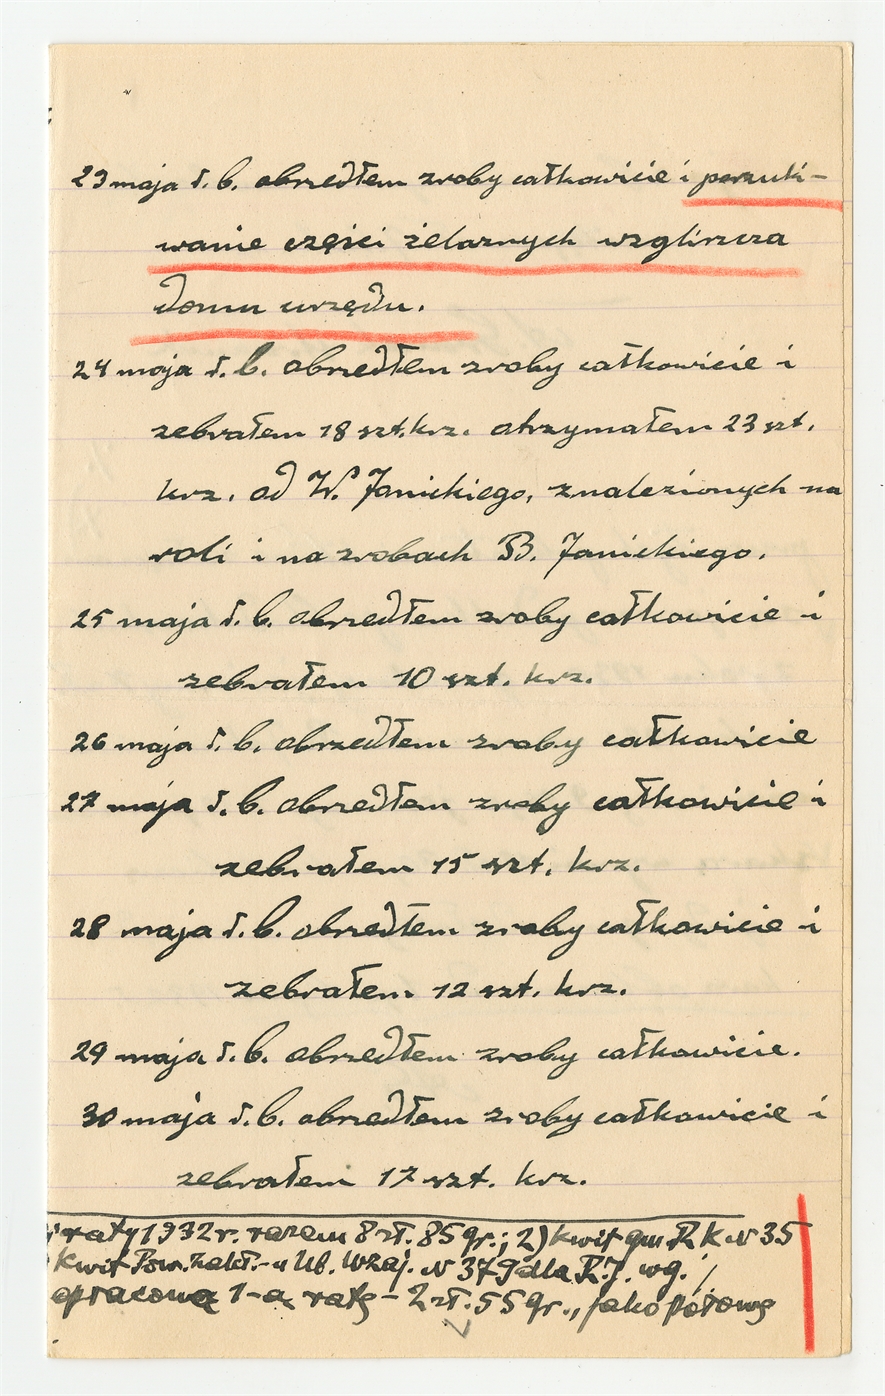 23 maja r. b. obszedłem zroby całkowicie i poszuki-
wanie części żelaznych wzgliszcza
domu urzędu.
24 maja r. b. obszedłem zroby całkowicie i
zebrałem 18 szt. krz. otrzymałem 23 szt.
krz. od W. Janickiego, znalezionych na
roli i na zrobach B. Janickiego.
25 maja r. b. obszedłem zroby całkowicie i
zebrałem 10 szt. krz.
26 maja r. b. obszedłem zroby całkowicie
27 maja r. b. obszedłem zroby całkowicie i
zebrałem 15 szt. krz.
28 maja r. b. obszedłem zroby całkowicie i
zebrałem 12 szt. krz.
29 maja r. b. obszedłem zroby całkowicie.
30 maja r. b. obszedłem zroby całkowicie i
zebrałem 17 szt. krz.
raty 1932 r. razem 8 zł. 85 gr.; 2) kwit gm. R K N 35
kwit Pow. Zakł. Ub. Wzaj. N 379 dla R. J. wg.
opłacona 1-a rata - 2 zł. 55 gr., jako połowa